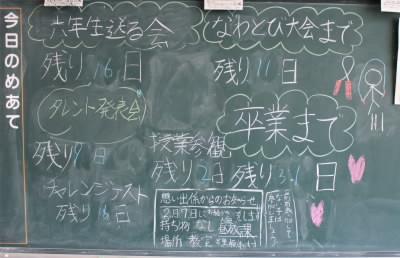 今日のめあて
六年生送る会
残り16日
なわとび大会まで
残り11日
タレント発表会
残り9日
卒業まで
残り31日
授業参観
残り2日
チャレンジテスト
残り16日
思い出係からのお知らせ
2月7日に
します
持ち物 なし
昼放課
場所 教室